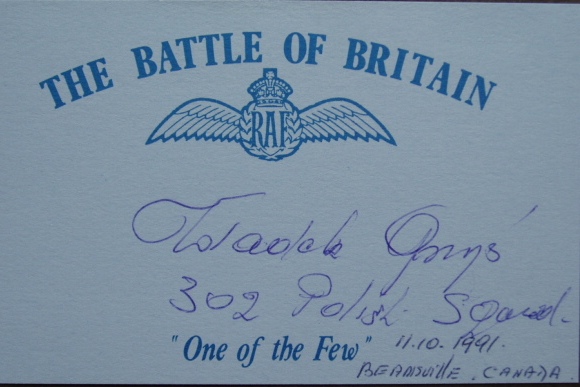 THE BATTLE OF BRITAIN
RAF
Wladek
302 Polish Squad.
"One of the Few" 11.10.1991.
BEAMSVILLE. CANADA.